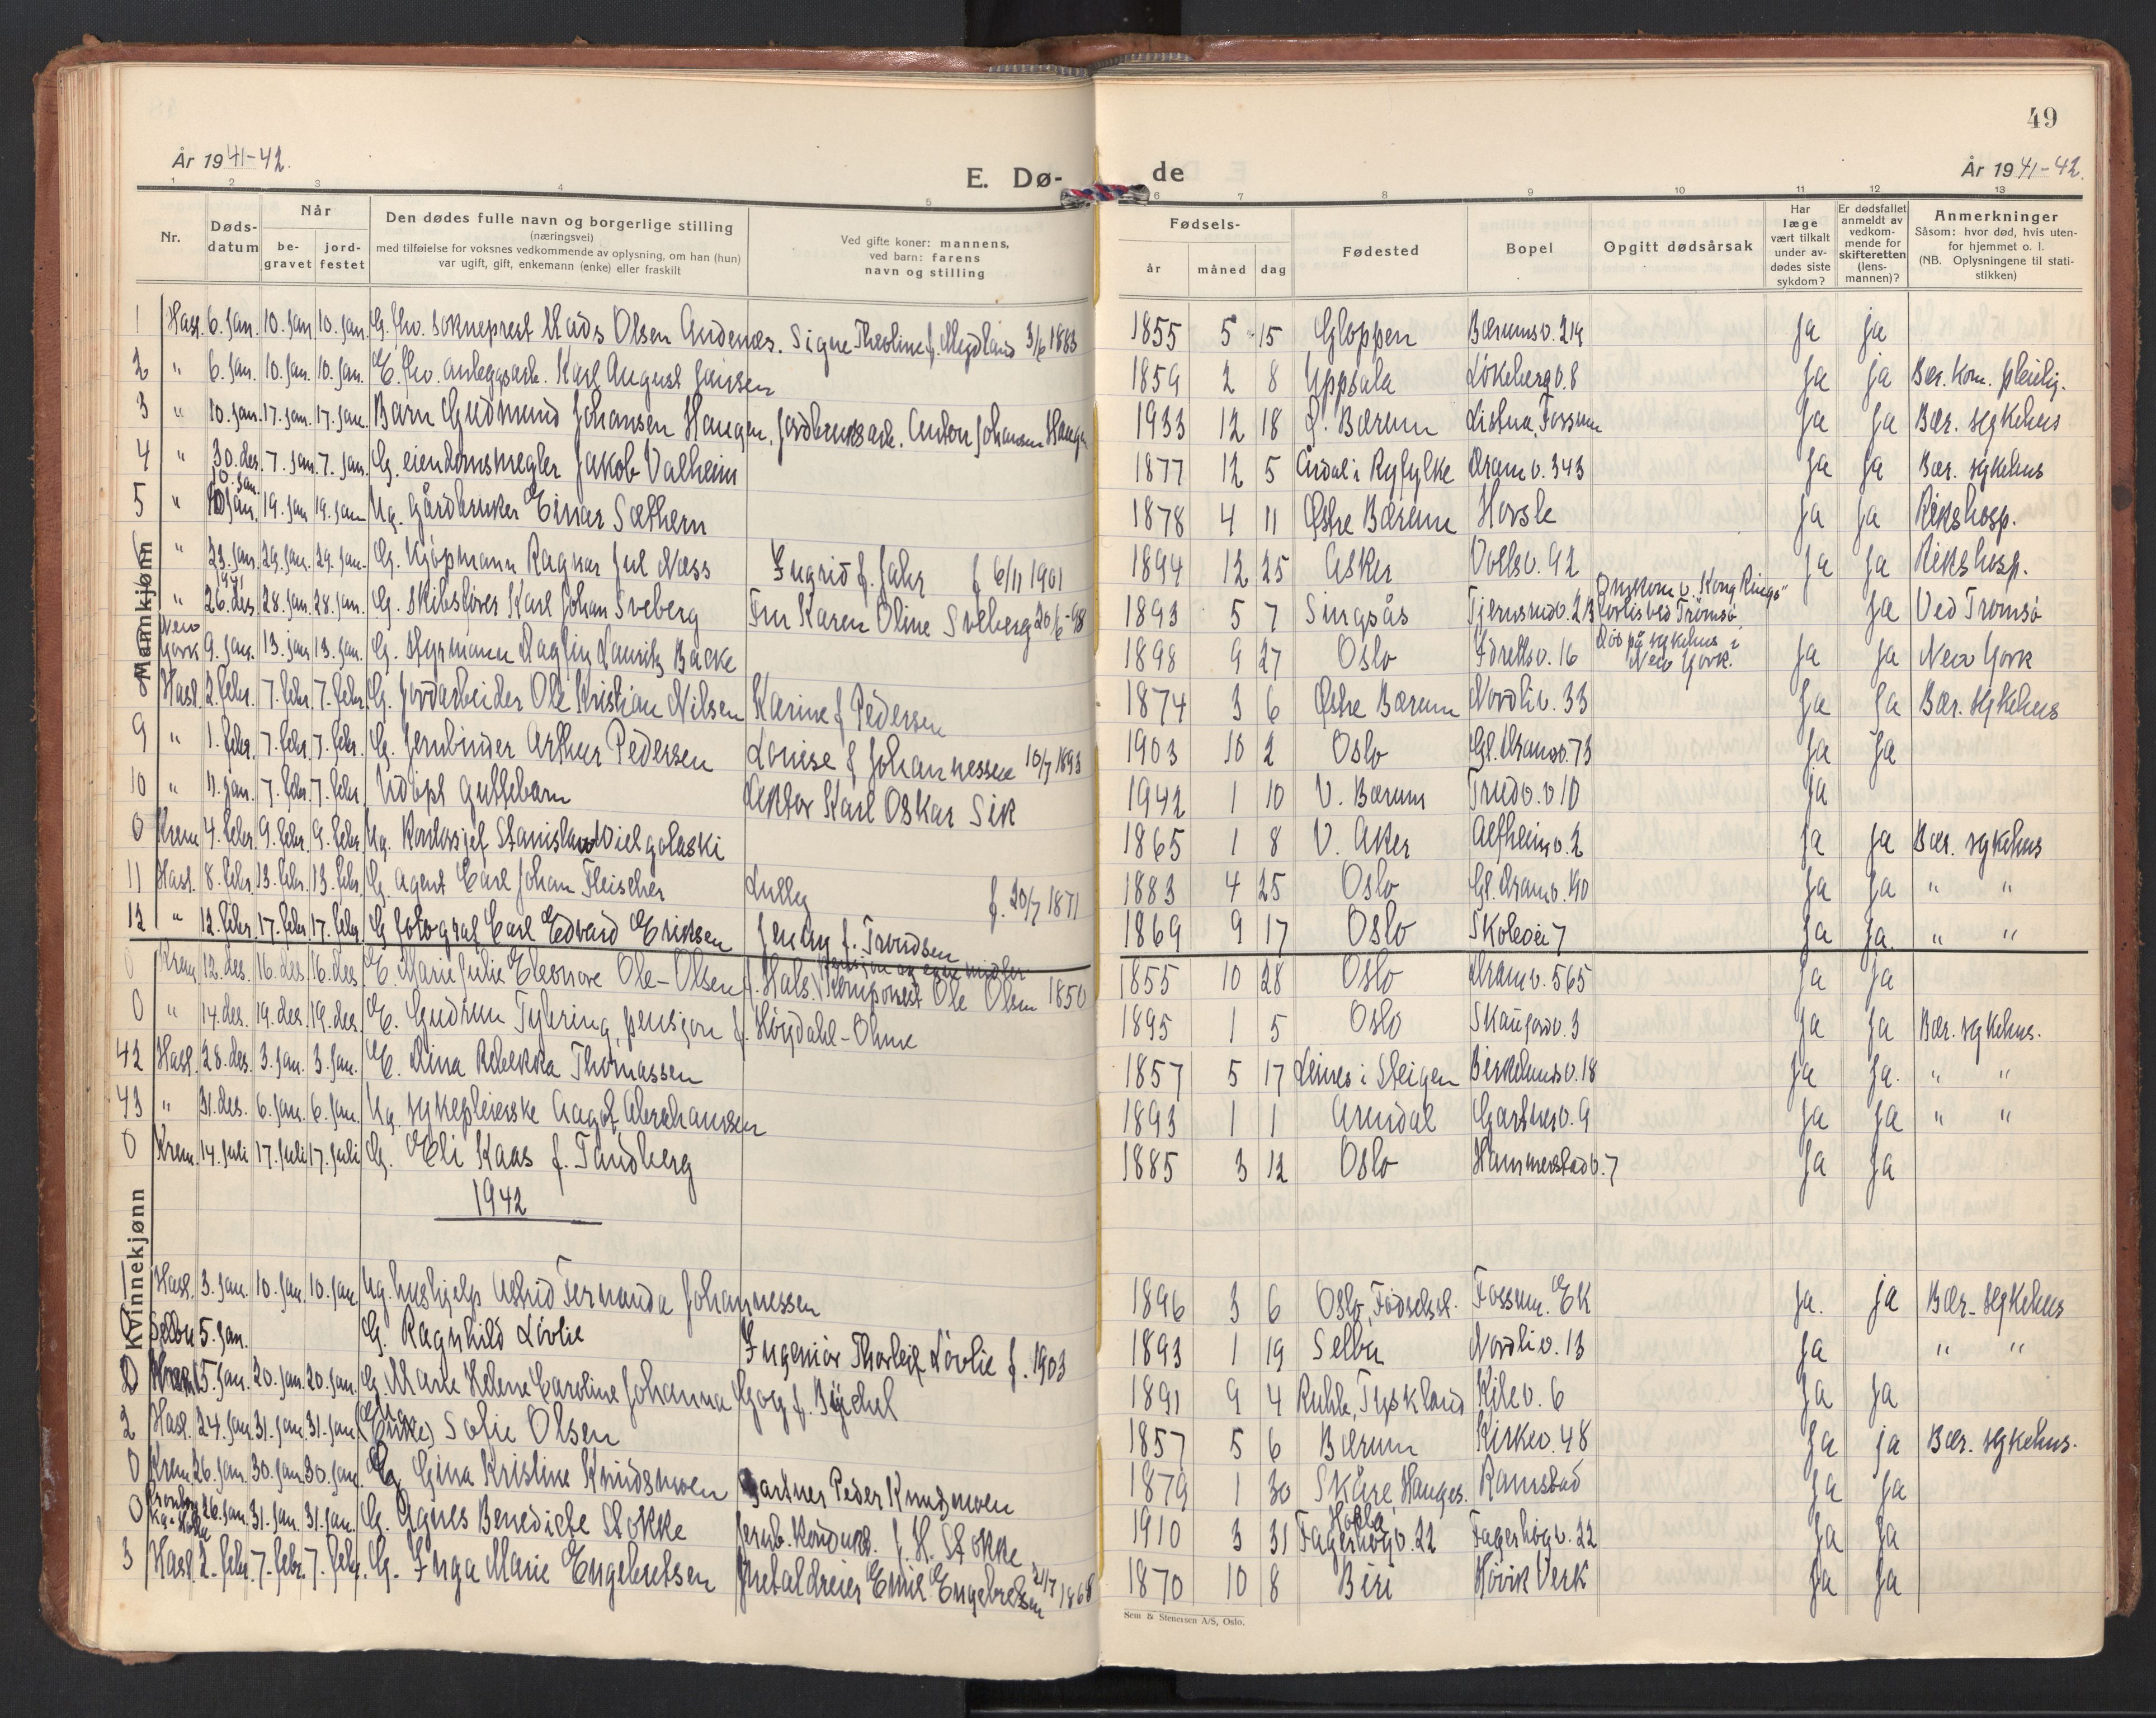 49
År 1941-42.
E. Dø-
de
År 1941-42.
1 2 3 4 5 6 7 8 9 10 11 12 13
Nr.
Døds-
datum
Når
be-
gravet
jord-
festet
Den dødes fulle navn og borgerlige stilling
(næringsvei)
med tilføielse for voksnes vedkommende av oplysning, om han (hun)
var ugift, gift, enkemann (enke) eller fraskilt
Ved gifte koner: mannens,
ved barn: farens
navn og stilling
Fødsels-
år
måned
dag
Fødested
Bopel
Opgitt dødsårsak
Har
læge
vært tilkalt
under av-
dødes siste
sykdom?
Er dødsfallet
anmeldt av
vedkom-
mende for
skifteretten
(lens-
mannen)?
Anmerkninger
Såsom: hvor død, hvis uten-
for hjemmet o. l.
(NB. Oplysningene til stati-
stikken)
Mannkjønn
1 Hasl. 6. jan. 10. jan 10. jan. G. fhv. sokneprest Mads Olsen Andenæs. Signe Theoline f. Mydland 3/6 1883 1855 5 15 Gloppen Bærumsv. 219 ja ja
2 " 6. jan. 10. jan. 10. jan. E. fhv. anleggsarb. Karl August Jansen 1859 2 8 Uppsala Løkebergv. 8 ja ja Bær. kom. pleiehj.
3 " 10. jan. 17. jan. 17. jan. Barn Gudmund Johansen Haugen. Jordbruksarb. Anton Johansen Haugen 1933 12 18 Ø. Bærum Listua, Fossum ja ja Bær. sykehus
4 " 30. des. 7. jan. 7. jan. G. eiendomsmegler Jakob Valheim 1877 12 5 Årdal i Ryfylke Dramv. 343 ja ja Bær. sykehus
5 " 10. jan. 19. jan 19. jan Ug. gårdbruker Einar Sæthern 1878 4 11 Østre Bærum Hosle ja ja Rikshosp.
" 23. jan. 29. jan. 29. jan. G. Kjøpmann Ragnar Jul Næss Ingrid f. Jahr f 6/11 1901 1894 12 25 Asker Vollsv. 92 ja ja Rikshosp.
" 1941 26. des. 28. jan. 28. jan. G. Skibsfører Karl Johan Sveberg Fru Karen Oline Sveberg 20/6-98 1893 5 7 Singsås Tjernsrudv. 23 Omkom v. "Kong Rings" forlis ved Tromsø ja Ved Tromsø
New York 9. jan. 13. jan 13. jan. G. styrmann Dagfin Lauritz Backe 1898 9 27 Oslo Idrettsv. 16 Død på sykehus i New York. ja ja New York
Hasl. 2. febr. 7. febr. 7. febr. G. jordarbeider Ole Kristian Nilsen Karine f Pedersen 1874 3 6 Østre Bærum Nordliv. 33 ja ja Bær. sykehus
9 " 1. febr. 7. febr. 7. febr. G. Jernbinder Arthur Pedersen Louise f Johannessen 10/7 1893 1903 10 2 Oslo Gl. Dramsv. 73 ja ja
10 " 11. jan. 7. febr. 7. febr. Udøpt guttebarn Lektor Karl Oskar Sik 1942 1 10 V. Bærum Trudv. v 10 ja
0 Krem 4. febr. 9. febr. 9. febr. Ug. Kontorsjef Stanislaw Wielgolaski 1865 1 8 V. Aker Alfheimv. 2 ja ja Bær. sykehus
11 Hasl. 8. febr. 13. febr. 13. febr. G. Agent Carl Johan Fleischer Lully f. 20/7 1871 1883 4 25 Oslo Gl. Dramv. 40 ja ja " "
12 " 12. febr. 17. febr. 17. febr. G fotograf Carl Edvard Eriksen Jenny f. Trondsen 1869 9 17 Oslo Skolevei 7 ja ja. " "
Kvinnekjønn
0 Krem. 12. des. 16. des 16. des. E. Marie Julie Eleonore Ole-Olsen f. Hals. Pensjon og egne midler Komponist Ole Olsen 1850 1855 10 28 Oslo Dramv. 565 ja ja
0 " 14. des. 19. des. 19. des. E. Gudrun Tybring, pensjon f. Høydahl-Ohme 1895 1 5 Oslo Skaugardv. 3 ja ja Bær. sykehus.
42 Hasl. 28. des. 3. jan. 3. jan. E. Dina Rebekka Thomassen 1857 5 17 Leines i Steigen Birkelundsv. 18 ja ja. " "
43 " 31. des. 6. jan. 6. jan. Ug. sykepleierske Aagot Abrahamsen 1893 1 1 Arendal Gartnerv. 9 ja ja " "
0 Krem. 14. juli 17. juli 17. juli G. Eli Kaas f. Tandberg 1885 3 12 Oslo Hammerstadv. 7 ja ja
1942
1 Hasl. 3. jan. 10. jan. 10. jan. Ug. hushjelp Astrid Fernanda Johannessen 1896 3 6 Oslo, Fødselsst. Fossum. EK ja. ja Bær. sykehus
Selbu 5. jan. G. Ragnhild Løvlie Ingeniør Thorleif Løvlie f. 1903 1893 1 19 Selbu Nordliv. 13 ja " "
0 Krem 15. jan. 20. jan. 20. jan. G. Marie Helene Caroline Johanna Gog f. Büchel 1891 9 4 Ruhla, Tyskland Kilev. 6 ja ja
2 Hasl. 24. jan. 31. jan. 31. jan. (Enke) Sofie Olsen 1857 5 6 Bærum Kirkev. 48 ja ja Bær. sykehus.
0 Krem. 26. jan. 30. jan. 30. jan. G. Gina Kristine Knudsmoen Gartner Peder Knudsmoen 1879 1 30 Skåre, Hauges. Ramstad ja ja
0 26. jan. 31. jan. 31. jan. G. Agnes Benedicte Stokke Jernb. Kondukt. J. H. Stokke 1910 3 31 Fagerhøgv. 22 Fagerhøgv. 22 ja ja
3 Hasl. 2. febr. 7. febr. 7. febr. G. Inga Marie Engebretsen Metaldreier Emil Engebretsen 21/7 1868 1870 10 8 Biri Høvik Verk ja ja
Sem & Stenersen A/S, Oslo.